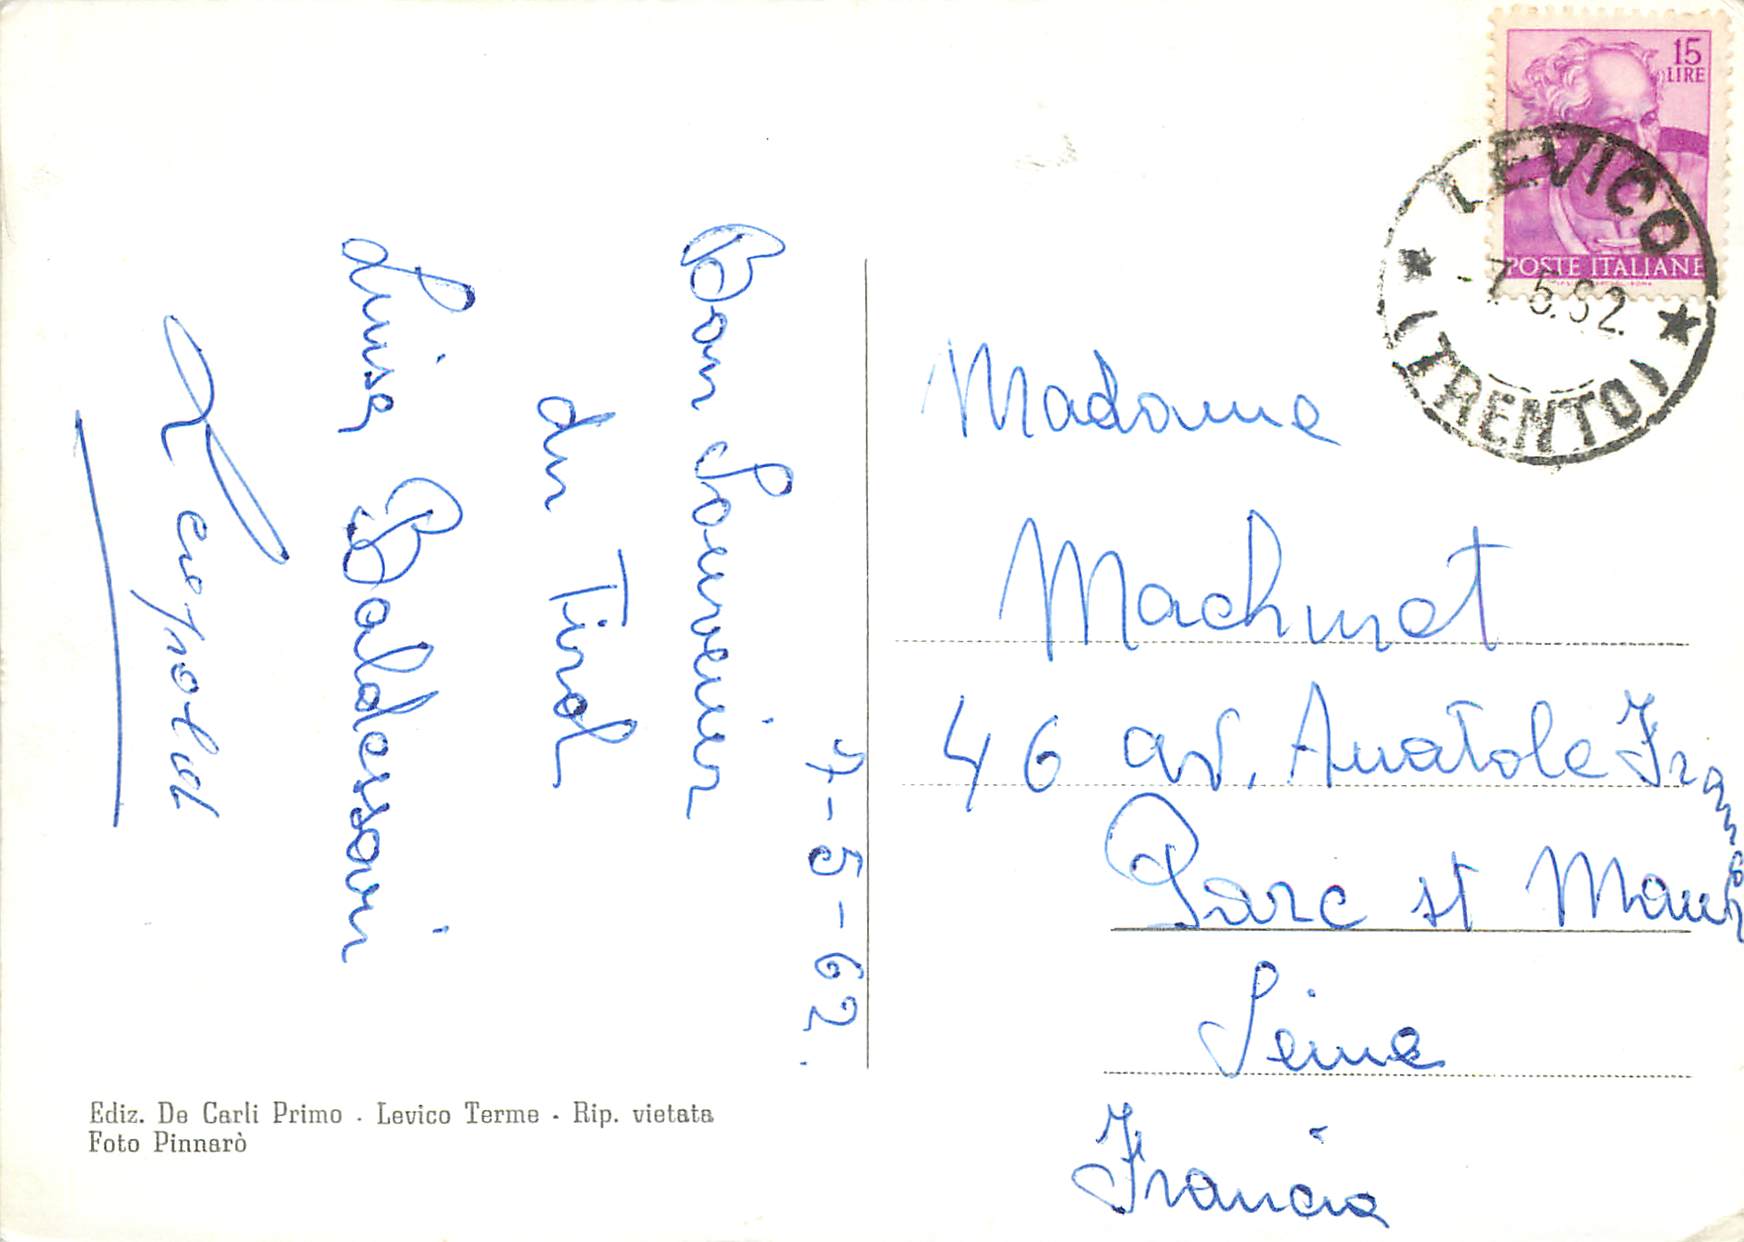 7-5-62.
Bon Souvenir
du Tirol
Luisa Baldessari
Leopold
Ediz. De Carli Primo - Levico Terme - Rip. vietata
Foto Pinnarò
15
LIRE
POSTE ITALIANE
LEVICO
-7.5.62.
(TRENTO)
Madame
Machurot
46 av. Anatole France
Parc st Maur
Seine
Francia